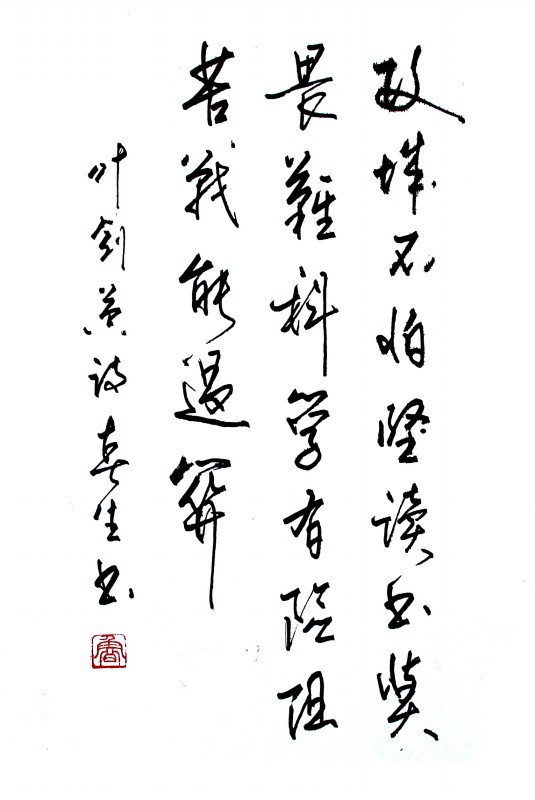 攻城不怕堅读书莫
畏難科学有险阻
苦战能過關
叶剑英诗春生书